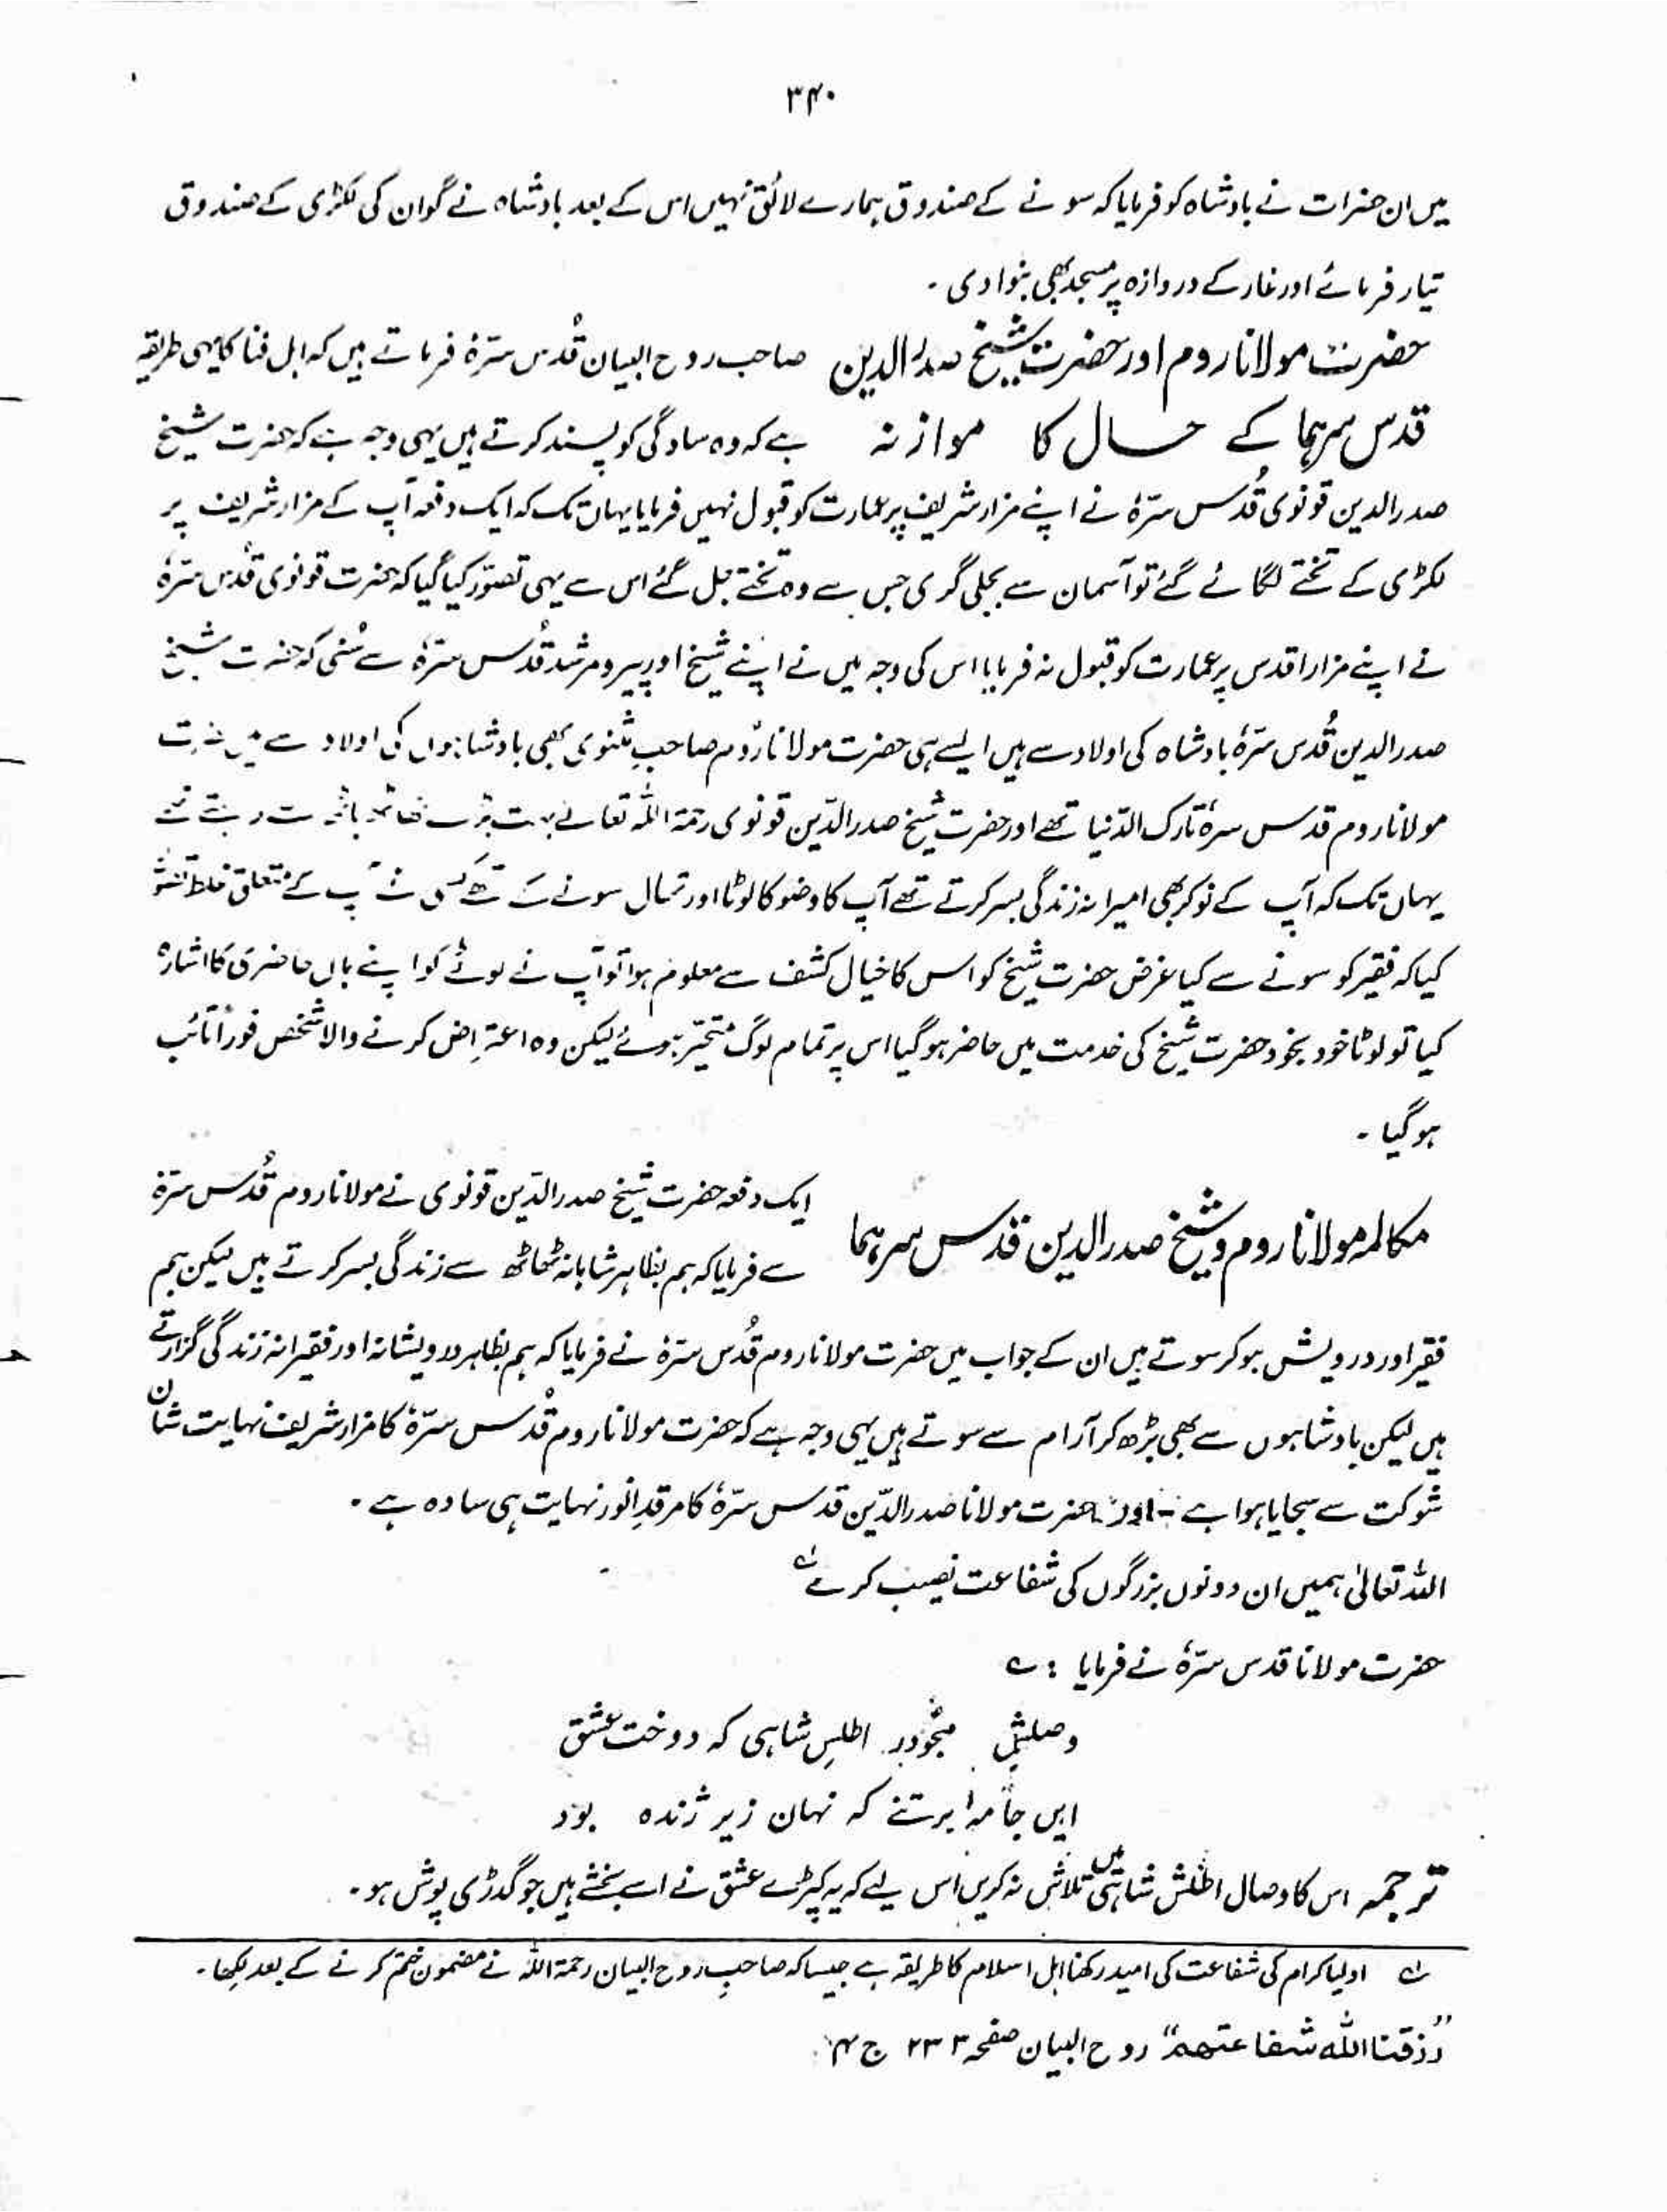 ۳۴۰
میں ان حضرات نے بادشاہ کو فرمایا کہ سونے کے صندوق ہمارے لائق نہیں اس کے بعد بادشاہ نے گوان کی لکڑی کے صندوق
تیار فرمائے اور غار کے دروازہ پر مسجد بھی بنوا دی ۔
حضرت مولانا روم اور حضرت شیخ صدر الدین صاحب روح البیان قُدس سرّہٗ فرماتے ہیں کہ اہل فنا کا یہی طریقہ
قدس سرہما کے حال کا موازنہ ہے کہ وہ سادگی کو پسند کرتے ہیں یہی وجہ ہے کہ حضرت شیخ
صدر الدین قونوی قُدس سرّہٗ نے اپنے مزار شریف پر عمارت کو قبول نہیں فرمایا یہاں تک کہ ایک دفعہ آپ کے مزار شریف پر
لکڑی کے تختے لگائے گئے تو آسمان سے بجلی گری جس سے وہ تختے جل گئے اس سے یہی تصوّر کیا گیا کہ حضرت قونوی قُدس سرّہٗ
نے اپنے مزار اقدس پر عمارت کو قبول نہ فرمایا اس کی وجہ میں نے اپنے شیخ اور پیر و مرشد قُدس سرّہٗ سے سُنی کہ حضرت شیخ
صدر الدین قُدس سرّہٗ بادشاہ کی اولاد سے ہیں ایسے ہی حضرت مولانا رُوم صاحبِ مثنوی بھی بادشاہوں کی اولاد سے ہیں حضرت
مولانا روم قدس سرہٗ تارک الدّنیا تھے اور حضرت شیخ صدر الدّین قونوی رحمۃ اللہ تعالےٰ بہت بڑے ٹھاٹھ باٹھ سے رہتے تھے
یہاں تک کہ آپ کے نوکر بھی امیرانہ زندگی بسر کرتے تھے آپ کا وضو کا لوٹا اور تھال سونے کے تھے کسی نے آپ کے متعلق غلط تصوّر
کیا کہ فقیر کو سونے سے کیا غرض حضرت شیخ کو اس کا خیال کشف سے معلوم ہوا تو آپ نے لوٹے کو اپنے ہاں حاضری کا اشارہ
کیا تو لوٹا خود بخود حضرت شیخ کی خدمت میں حاضر ہو گیا اس پر تمام لوگ متحیّر ہوئے لیکن وہ اعتراض کرنے والا شخص فوراً تائب
ہو گیا ۔
مکالمہ مولانا روم و شیخ صدر الدین قدس سرہما ایک دفعہ حضرت شیخ صدر الدّین قونوی نے مولانا روم قُدس سرّہٗ
سے فرمایا کہ ہم بظاہر شاہانہ ٹھاٹھ سے زندگی بسر کرتے ہیں لیکن ہم
فقیر اور درویش ہو کر سوتے ہیں ان کے جواب میں حضرت مولانا روم قُدس سرّہٗ نے فرمایا کہ ہم بظاہر درویشانہ اور فقیرانہ زندگی گزارتے
ہیں لیکن بادشاہوں سے بھی بڑھ کر آرام سے سوتے ہیں یہی وجہ ہے کہ حضرت مولانا روم قُدس سرّہٗ کا مزار شریف نہایت شان
شوکت سے سجایا ہوا ہے ۔ اور حضرت مولانا صدر الدّین قدس سرّہٗ کا مرقدِ انور نہایت ہی سادہ ہے ۔
اللہ تعالیٰ ہمیں ان دونوں بزرگوں کی شفاعت نصیب کرے ۱؎
حضرت مولانا قدس سرّہٗ نے فرمایا : ؎
وصلش مجو در اطلسِ شاہی کہ دوخت عشق
ایں جامہ ا بر تنے کہ نہان زیر ژندہ بود
ترجمہ اس کا وصال اطلس شاہی میں تلاش نہ کریں اس لیے کہ یہ کپڑے عشق نے اسے بخشے ہیں جو گدڑی پوش ہو ۔
۱؎ اولیا کرام کی شفاعت کی امید رکھنا اہل اسلام کا طریقہ ہے جیسا کہ صاحبِ روح البیان رحمۃ اللہ نے مضمون ختم کرنے کے بعد لکھا ۔
"رزقنا اللہ شفاعتھم" روح البیان صفحہ ۲۳۳ ج ۴